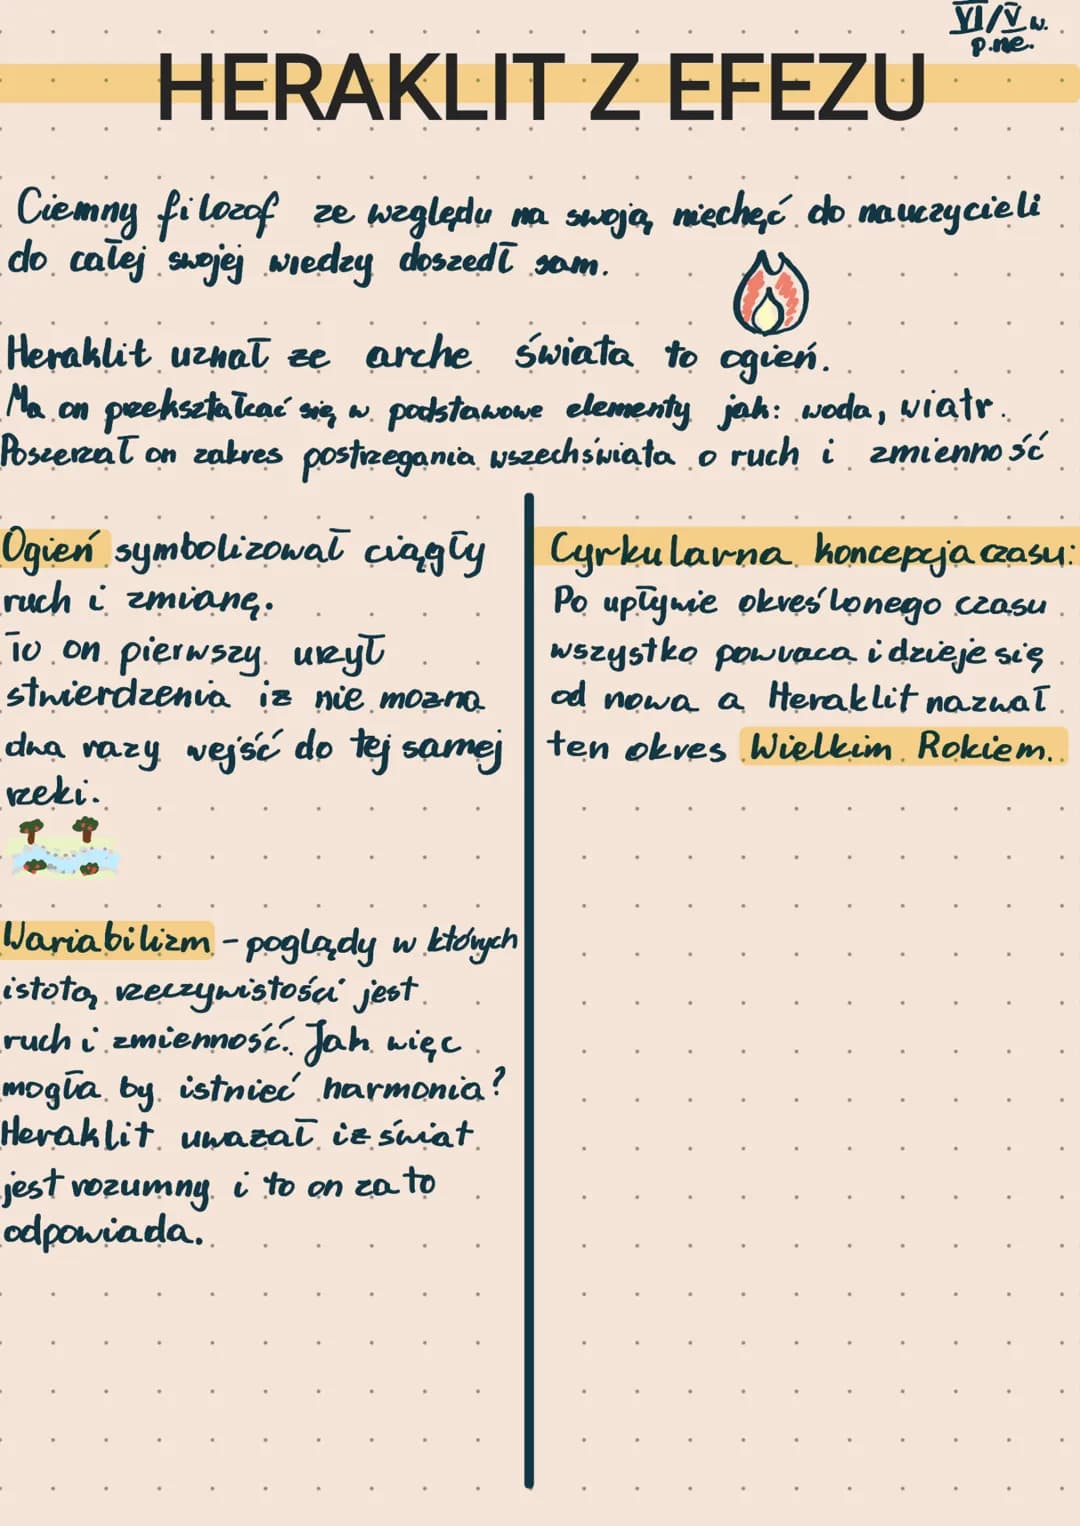 VI/V w.
p.ne.
HERAKLIT Z EFEZU
Ciemny filozof ze względu na swoją niechęć do nauczycieli
do całej swojej wiedzy doszedł sam.
Heraklit uznał ze arche świata to ogień.
Ma on przekształcać się w podstawowe elementy jak: woda, wiatr.
Poszerzał on zakres postrzegania wszechświata o ruch i zmienność
Ogień symbolizował ciągły
ruch i zmianę.
To on pierwszy użył
stwierdzenia iz nie mozna
dwa razy wejść do tej samej
rzeki.
Wariabilizm - poglądy w których
istotą rzeczywistości jest
ruch i zmienność. Jak więc
mogła by istnieć harmonia?
Heraklit uwazał iz świat
jest rozumny i to on za to
odpowiada.
Cyrkularna koncepcja czasu:
Po upływie określonego czasu
wszystko powraca i dzieje się
od nowa a Heraklit nazwał
ten okres Wielkim Rokiem.